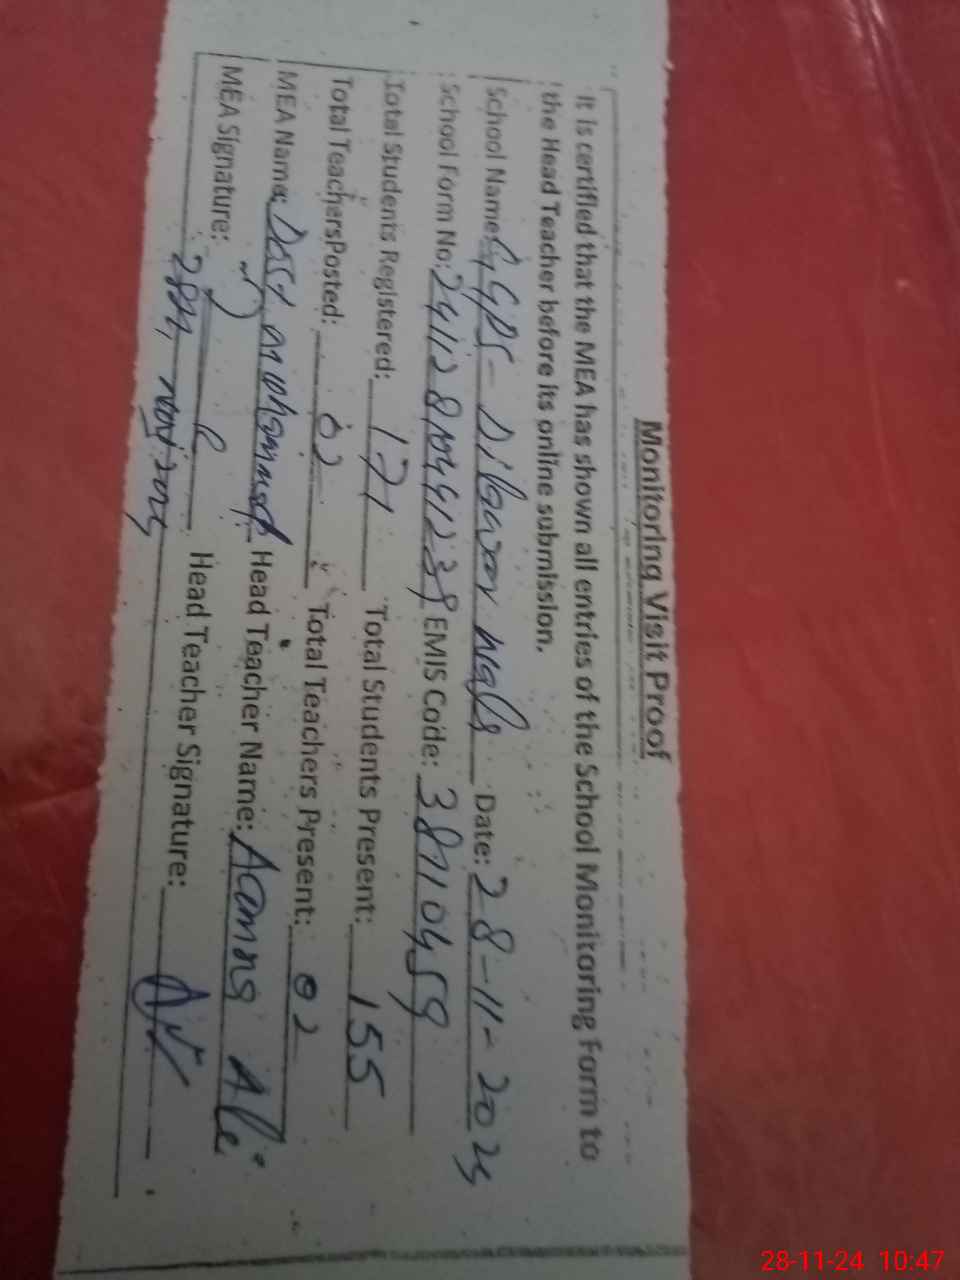 Monitoring Visit Proof
It is certified that the MEA has shown all entries of the School Monitoring Form to
the Head Teacher before its online submission.
School Name: GGPS- Dilawar wala Date: 28-11-2024
School Form No: EMIS Code: 38710459
Total Students Registered: 171 Total Students Present: 155
Total Teachers Posted: 02 Total Teachers Present: 02
MEA Name: Dost Muhammad Head Teacher Name: Aamna Ali
MEA Signature: Head Teacher Signature:
28-11-24 10:47